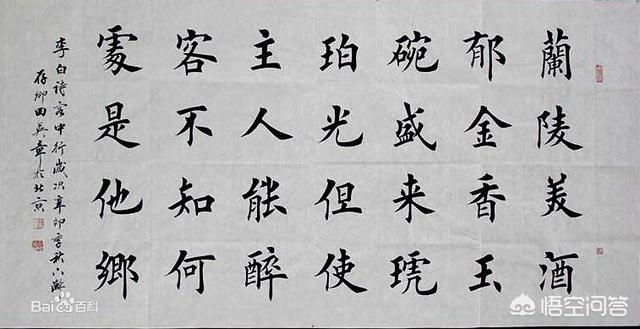 蘭陵美酒
郁金香玉
碗盛来琥
珀光但使
主人能醉
客不知何
處是他鄉
李白诗客中行歲次辛卯季秋
存卿田英章於北京
Bai百科
悟空问答